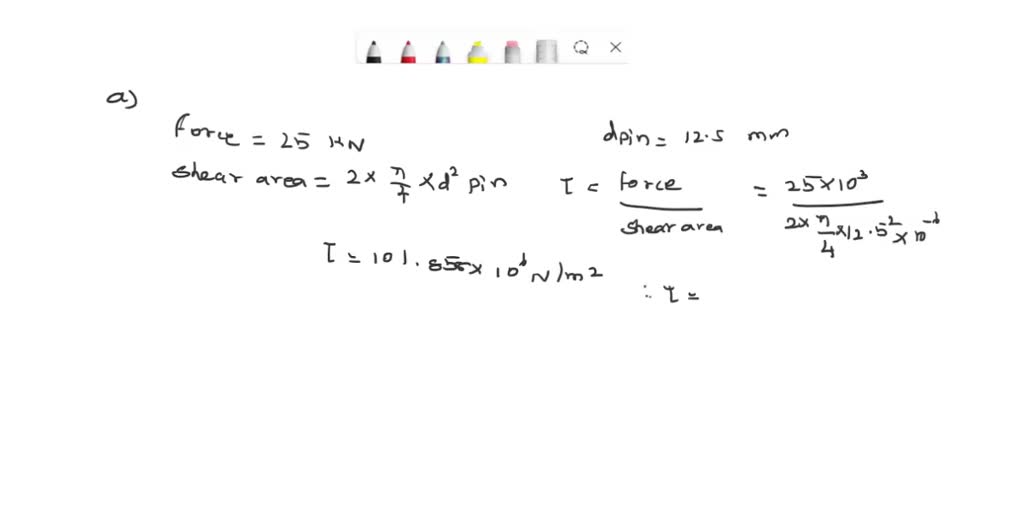 a)
Force = 25 KN
dpin = 12.5 mm
shear area = 2 × π/4 × d² pin
τ = force / shear area = 25×10³ / 2× π/4 ×12.5² × 10⁻⁶
τ = 101.858 × 10⁶ N/m2
∴ τ =